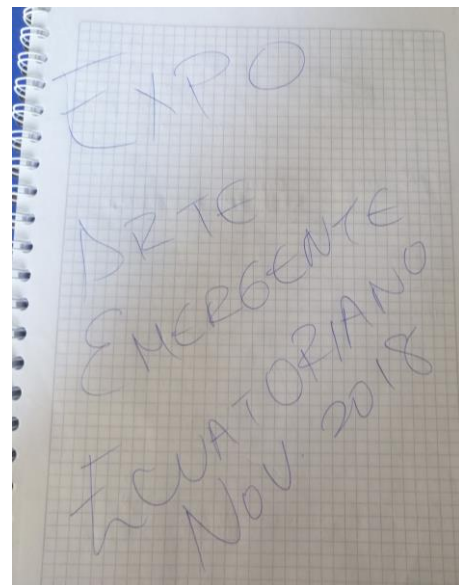 EXPO
ARTE
EMERGENTE
ECUATORIANO
NOV. 2018